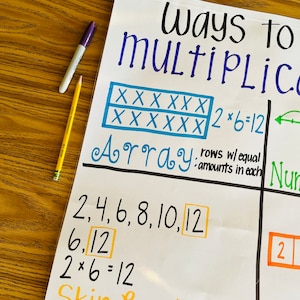 WAYS TO
MULTIPLIC
XXXXXX
XXXXXX
2×6=12
Array: rows w/equal
amounts in each
Nu
2,4,6,8,10,12
6,12
2
2×6=12
Skip